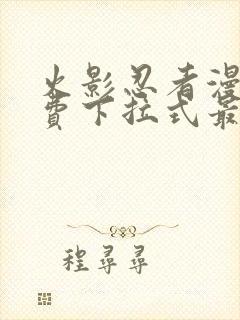 火影忍者漫
费下拉式最
程寻寻